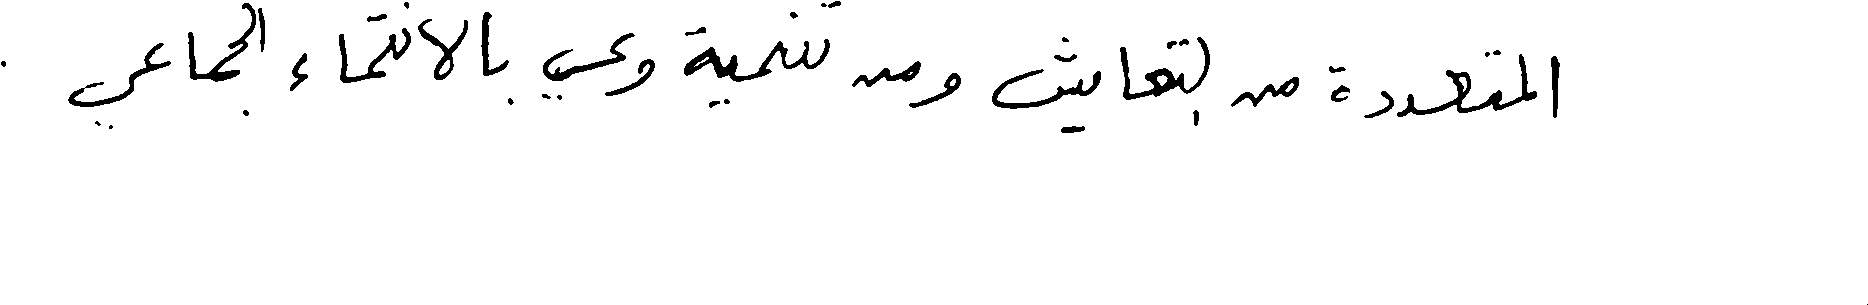 المتعددة من التعايش ومن تنمية وعي بالانتماء الجماعي .